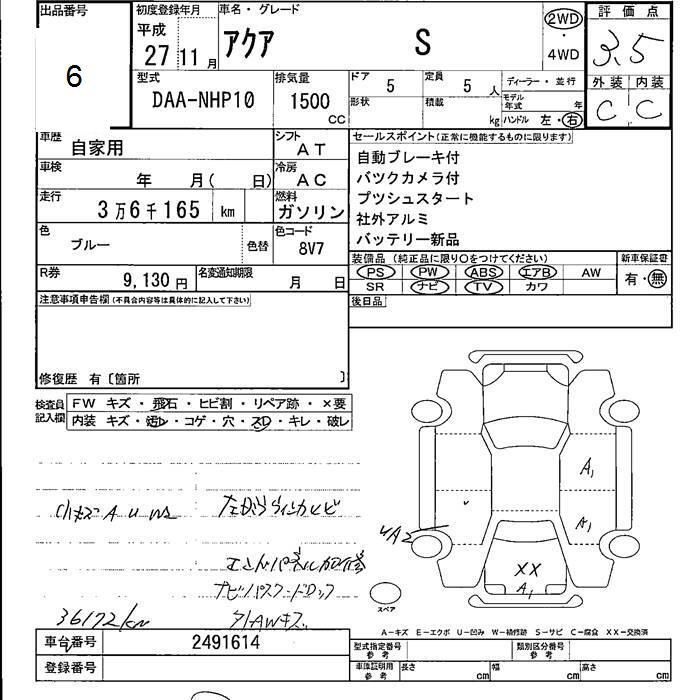 出品番号
6
初度登録年月
平成
27 11 月
車名・グレード
アクア S
2WD
・
4WD
評価点
3.5
外装 内装
C C
型式
DAA-NHP10
排気量
1500
CC
ドア
5
定員
5 人
形状
積載
kg
ディーラー・並行
モデル年式 年
ハンドル 左・右
車歴
自家用
シフト
AT
車検
年 月( 日)
冷房
AC
走行
3万6千165 km
燃料
ガソリン
色
ブルー
色替
色コード
8V7
R券
9,130円
名変通知期限
月 日
セールスポイント(正常に機能するものに限ります)
自動ブレーキ付
バツクカメラ付
プツシュスタート
社外アルミ
バッテリー新品
装備品 (純正品に限り○をつけてください)
PS PW ABS エアB AW
SR ナビ TV カワ
新車保証書
有・無
後日品
注意事項申告欄(不具合内容等は具体的に記入して下さい)
修復歴 有〔箇所 〕
検査員記入欄
FW キズ・飛石・ヒビ割・リペア跡・×要
内装 キズ・汚レ・コゲ・穴・スレ・キレ・破レ
小キズ A U
ナビパスワードロック
36172km
AWキズ
A1
A1
XX
A1
スペア
A-キズ E-エクボ U-凹み W-補修跡 S-サビ C-腐食 XX-交換済
車台番号
2491614
登録番号
型式指定番号
参考
類別区分番号
参考
車庫証明用
参考
長さ cm
幅 cm
高さ cm